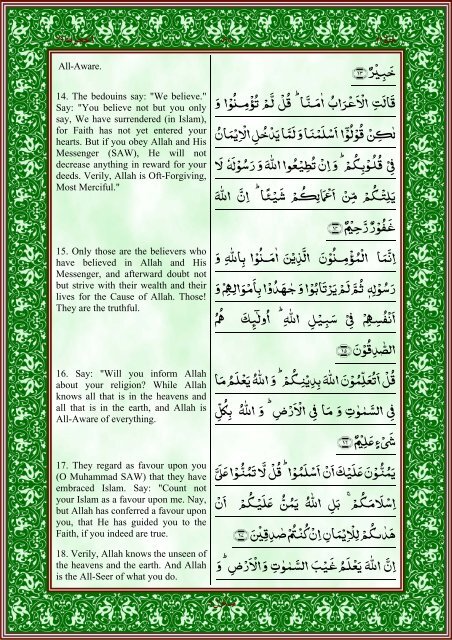 All-Aware.
14. The bedouins say: "We believe."
Say: "You believe not but you only
say, We have surrendered (in Islam),
for Faith has not yet entered your
hearts. But if you obey Allah and His
Messenger (SAW), He will not
decrease anything in reward for your
deeds. Verily, Allah is Oft-Forgiving,
Most Merciful."
15. Only those are the believers who
have believed in Allah and His
Messenger, and afterward doubt not
but strive with their wealth and their
lives for the Cause of Allah. Those!
They are the truthful.
16. Say: "Will you inform Allah
about your religion? While Allah
knows all that is in the heavens and
all that is in the earth, and Allah is
All-Aware of everything.
17. They regard as favour upon you
(O Muhammad SAW) that they have
embraced Islam. Say: "Count not
your Islam as a favour upon me. Nay,
but Allah has conferred a favour upon
you, that He has guided you to the
Faith, if you indeed are true.
18. Verily, Allah knows the unseen of
the heavens and the earth. And Allah
is the All-Seer of what you do.
خَبِيْرٌ ﴿۱۳﴾
قَالَتِ الْاَعْرَابُ اٰمَنَّا ؕ قُلْ لَّمْ تُؤْمِنُوْا وَ
لٰكِنْ قُوْلُوْۤا اَسْلَمْنَا وَ لَمَّا يَدْخُلِ الْاِيْمَانُ
فِيْ قُلُوْبِكُمْ ؕ وَ اِنْ تُطِيْعُوا اللّٰهَ وَ رَسُوْلَهٗ لَا
يَلِتْكُمْ مِّنْ اَعْمَالِكُمْ شَيْـًٔا ؕ اِنَّ اللّٰهَ
غَفُوْرٌ رَّحِيْمٌ ﴿۱۴﴾
اِنَّمَا الْمُؤْمِنُوْنَ الَّذِيْنَ اٰمَنُوْا بِاللّٰهِ وَ
رَسُوْلِهٖ ثُمَّ لَمْ يَرْتَابُوْا وَ جٰهَدُوْا بِاَمْوَالِهِمْ وَ
اَنْفُسِهِمْ فِيْ سَبِيْلِ اللّٰهِ ؕ اُولٰٓئِكَ هُمُ
الصّٰدِقُوْنَ ﴿۱۵﴾
قُلْ اَتُعَلِّمُوْنَ اللّٰهَ بِدِيْنِكُمْ ؕ وَ اللّٰهُ يَعْلَمُ مَا
فِي السَّمٰوٰتِ وَ مَا فِي الْاَرْضِ ؕ وَ اللّٰهُ بِكُلِّ
شَيْءٍ عَلِيْمٌ ﴿۱۶﴾
يَمُنُّوْنَ عَلَيْكَ اَنْ اَسْلَمُوْا ؕ قُلْ لَّا تَمُنُّوْا عَلَيَّ
اِسْلَامَكُمْ ۚ بَلِ اللّٰهُ يَمُنُّ عَلَيْكُمْ اَنْ
هَدٰىكُمْ لِلْاِيْمَانِ اِنْ كُنْتُمْ صٰدِقِيْنَ ﴿۱۷﴾
اِنَّ اللّٰهَ يَعْلَمُ غَيْبَ السَّمٰوٰتِ وَ الْاَرْضِ ؕ وَ